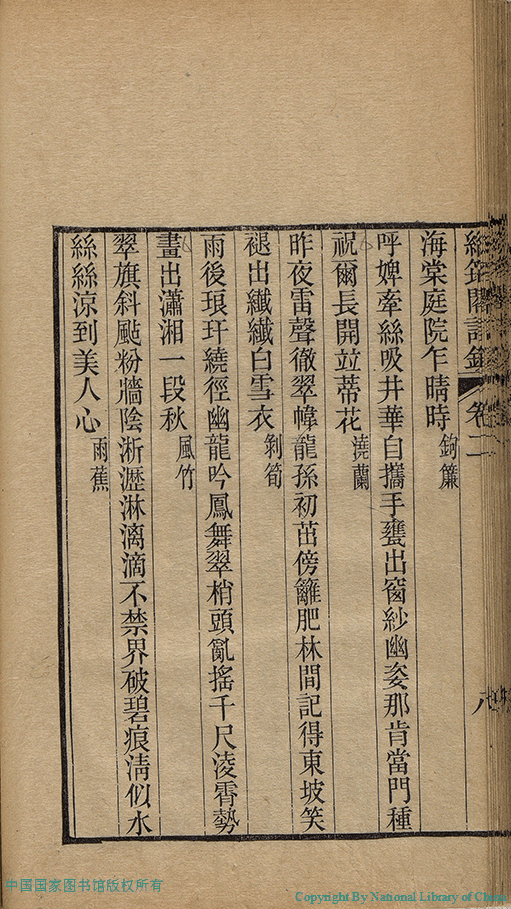 海棠庭院乍晴時 鉤簾
呼婢牽絲吸井華自攜手甕出窗紗幽姿那肯當門種
祝爾長開竝蒂花 澆蘭
昨夜雷聲徹翠幃龍孫初茁傍籬肥林間記得東坡笑
褪出纖纖白雪衣 剝筍
雨後琅玕繞徑幽龍吟鳳舞翠梢頭亂搖千尺淩霄勢
畫出瀟湘一段秋 風竹
翠旗斜颭粉牆陰淅瀝淋漓滴不禁界破碧痕淸似水
絲絲涼到美人心 雨蕉
卷二
八
中国国家图书馆版权所有
Copyright By National Library of China